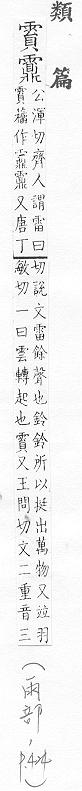 類篇
霣
公渾切齊人謂雷曰
霣籒作又唐丁
切說文雷餘聲也鈴鈴所以挺出萬物又竝羽
敏切一曰雲轉起也霣又王問切文二重音三
(雨部, p.424)